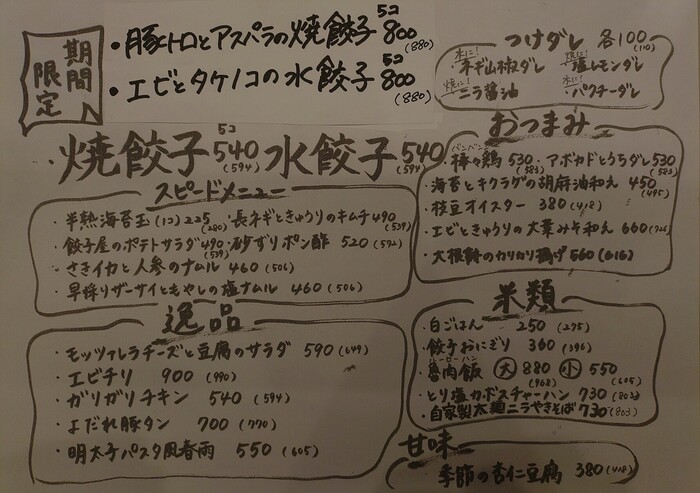 期間限定
・豚トロとアスパラの焼餃子 5コ 800 (880)
・エビとタケノコの水餃子 5コ 800 (880)
つけダレ 各100 (110)
水に! ・ネギ山椒ダレ
・塩レモンダレ
焼に! ・ニラ醤油
水に! ・パクチーダレ
・焼餃子 5コ 540 (594) 水餃子 540 (594)
おつまみ
バンバン
・棒々鶏 530 (583) ・アボカドとうらダレ 530 (583)
・海苔とキクラゲの胡麻油和え 450 (495)
・枝豆オイスター 380 (418)
・エビときゅうりの大葉みそ和え 660 (726)
・大根餅のカリカリ揚げ 560 (616)
スピードメニュー
・半熟海苔玉 (1コ) 225 ・長ネギときゅうりのキムチ 490 (539)
・餃子屋のポテトサラダ 490 (539) ・砂ずりポン酢 520 (572)
・さきイカと人参のナムル 460 (506)
・早採りザーサイともやしの塩ナムル 460 (506)
逸品
・モッツァレラチーズと豆腐のサラダ 590 (649)
・エビチリ 900 (990)
・ガリガリチキン 540 (594)
・よだれ豚タン 700 (770)
・明太子パスタ風春雨 550 (605)
米類
・白ごはん 250 (275)
・餃子おにぎり 360 (396)
ルーローハン
・魯肉飯 大 880 (968) 小 550 (605)
・とり塩カボスチャーハン 730 (803)
・自家製太麺ニラやきそば 730 (803)
甘味
・季節の杏仁豆腐 380 (418)